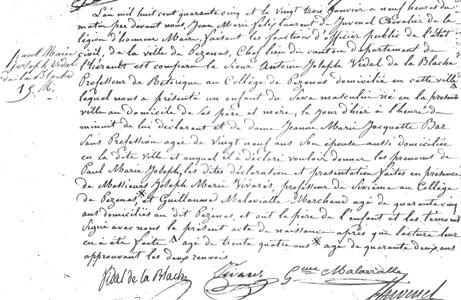 L'an mil huit cent quarante cinq et le vingt trois Janvier a neuf heures du
matin par devant nous, Jean Marie Felix, Laurent de Juvenel Chevalier de la
légion d'honneur Maire, faisant les fonctions d'officier public de l'état
civil, de la ville de Pezenas, Chef lieu du canton département de
l'hérault est comparu le Sieur Antoine Joseph Vidal de la Blache
Professeur de Rétorique au Collège de Pezenas domicilié en cette ville
lequel nous a présenté un enfant du Sexe masculin né en la présente
ville au domicile de ses père et mère, le jour d'hier à l'heure de
minuit de lui déclarant et de dame Jeanne Marie Jacquette Bar
Sans Profession agée de Vingt neuf ans Son épouse aussi domiciliée
en la dite ville et auquel il a déclaré vouloir donner les prenoms de
Paul Marie Joseph, les dites déclaration et présentation faites en présence
de Messieurs Joseph Marie Vivarès, professeur de Sixième au Collège
de Pezenas, et Guillaume Malavialle Marchand agé de quarante cinq
ans domiciliés au dit Pezenas, et ont le père de l'enfant et les témoins
Signé avec nous le présent acte de naissance après que lecture leur
en a été faite agé de trente quatre ans agé de quarante deux ans
approuvant les deux renvois
Paul Marie
Joseph Vidal
de la Blache
Vidal de la Blache Vivarès Gme Malavialle
Juvenel